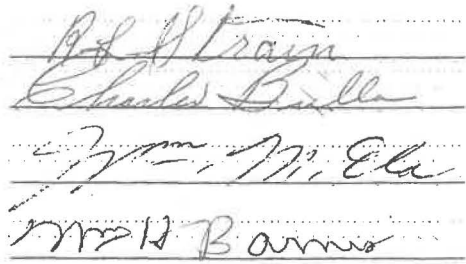 R L Strain
Charlie
Wm. M. Ela
Wm H Barnes